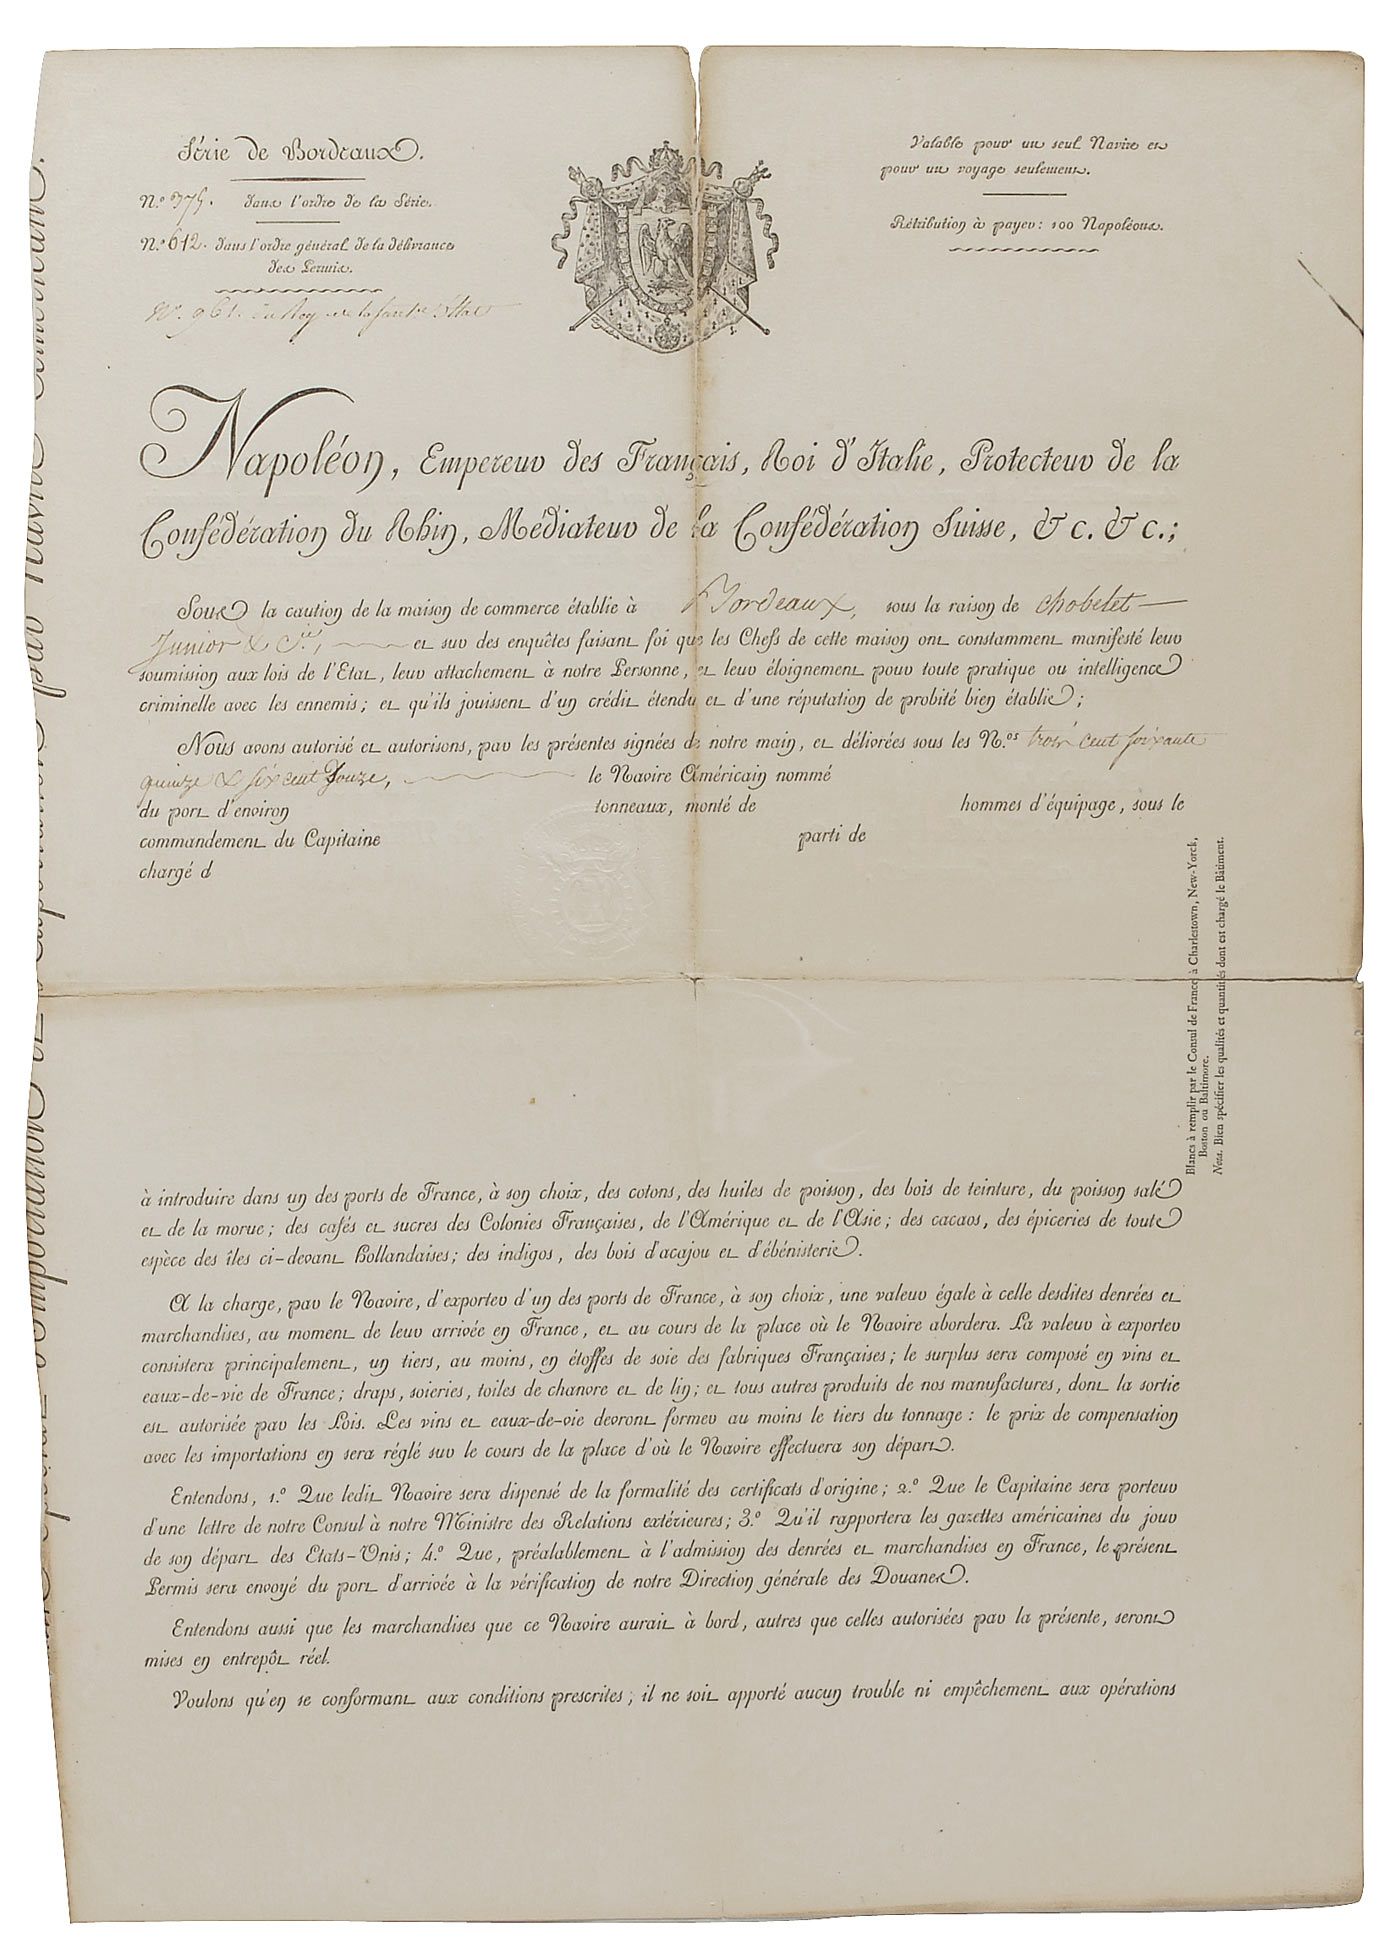 Série de Bordeaux.
N.º 375. dans l'ordre de la Série.
N.º 612. dans l'ordre général de la délivrance
des Permis.
N.º 961.
Valable pour un seul Navire et
pour un voyage seulement.
Rétribution à payer : 100 Napoléons.
Napoléon, Empereur des Français, Roi d'Italie, Protecteur de la
Confédération du Rhin, Médiateur de la Confédération Suisse, &c. &c.;
Sous la caution de la maison de commerce établie à Bordeaux, sous la raison de Chobelet
Junior & C.ie, et sur des enquêtes faisant foi que les Chefs de cette maison ont constamment manifesté leur
soumission aux lois de l'Etat, leur attachement à notre Personne, et leur éloignement pour toute pratique ou intelligence
criminelle avec les ennemis; et qu'ils jouissent d'un crédit étendu et d'une réputation de probité bien établie;
Nous avons autorisé et autorisons, par les présentes signées de notre main, et délivrées sous les N.os trois cent soixante
quinze & six cent douze, le Navire Américain nommé
du port d'environ tonneaux, monté de hommes d'équipage, sous le
commandement du Capitaine parti de
chargé d
Blancs à remplir par le Consul de France à Charlestown, New-Yorck,
Boston ou Baltimore.
Nota. Bien spécifier les qualités et quantités dont est chargé le Bâtiment.
à introduire dans un des ports de France, à son choix, des cotons, des huiles de poisson, des bois de teinture, du poisson salé
et de la morue; des cafés et sucres des Colonies Françaises, de l'Amérique et de l'Asie; des cacaos, des épiceries de toute
espèce des îles ci-devant Hollandaises; des indigos, des bois d'acajou et d'ébénisterie.
A la charge, par le Navire, d'exporter d'un des ports de France, à son choix, une valeur égale à celle desdites denrées et
marchandises, au moment de leur arrivée en France, et au cours de la place où le Navire abordera. La valeur à exporter
consistera principalement, un tiers, au moins, en étoffes de soie des fabriques Françaises; le surplus sera composé en vins et
eaux-de-vie de France; draps, soieries, toiles de chanvre et de lin; et tous autres produits de nos manufactures, dont la sortie
est autorisée par les Lois. Les vins et eaux-de-vie devront former au moins le tiers du tonnage : le prix de compensation
avec les importations en sera réglé sur le cours de la place d'où le Navire effectuera son départ.
Entendons, 1.º Que ledit Navire sera dispensé de la formalité des certificats d'origine; 2.º Que le Capitaine sera porteur
d'une lettre de notre Consul à notre Ministre des Relations extérieures; 3.º Qu'il rapportera les gazettes américaines du jour
de son départ des Etats-Unis; 4.º Que, préalablement à l'admission des denrées et marchandises en France, le présent
Permis sera envoyé du port d'arrivée à la vérification de notre Direction générale des Douanes.
Entendons aussi que les marchandises que ce Navire aurait à bord, autres que celles autorisées par la présente, seront
mises en entrepôt réel.
Voulons qu'en se conformant aux conditions prescrites; il ne soit apporté aucun trouble ni empêchement aux opérations